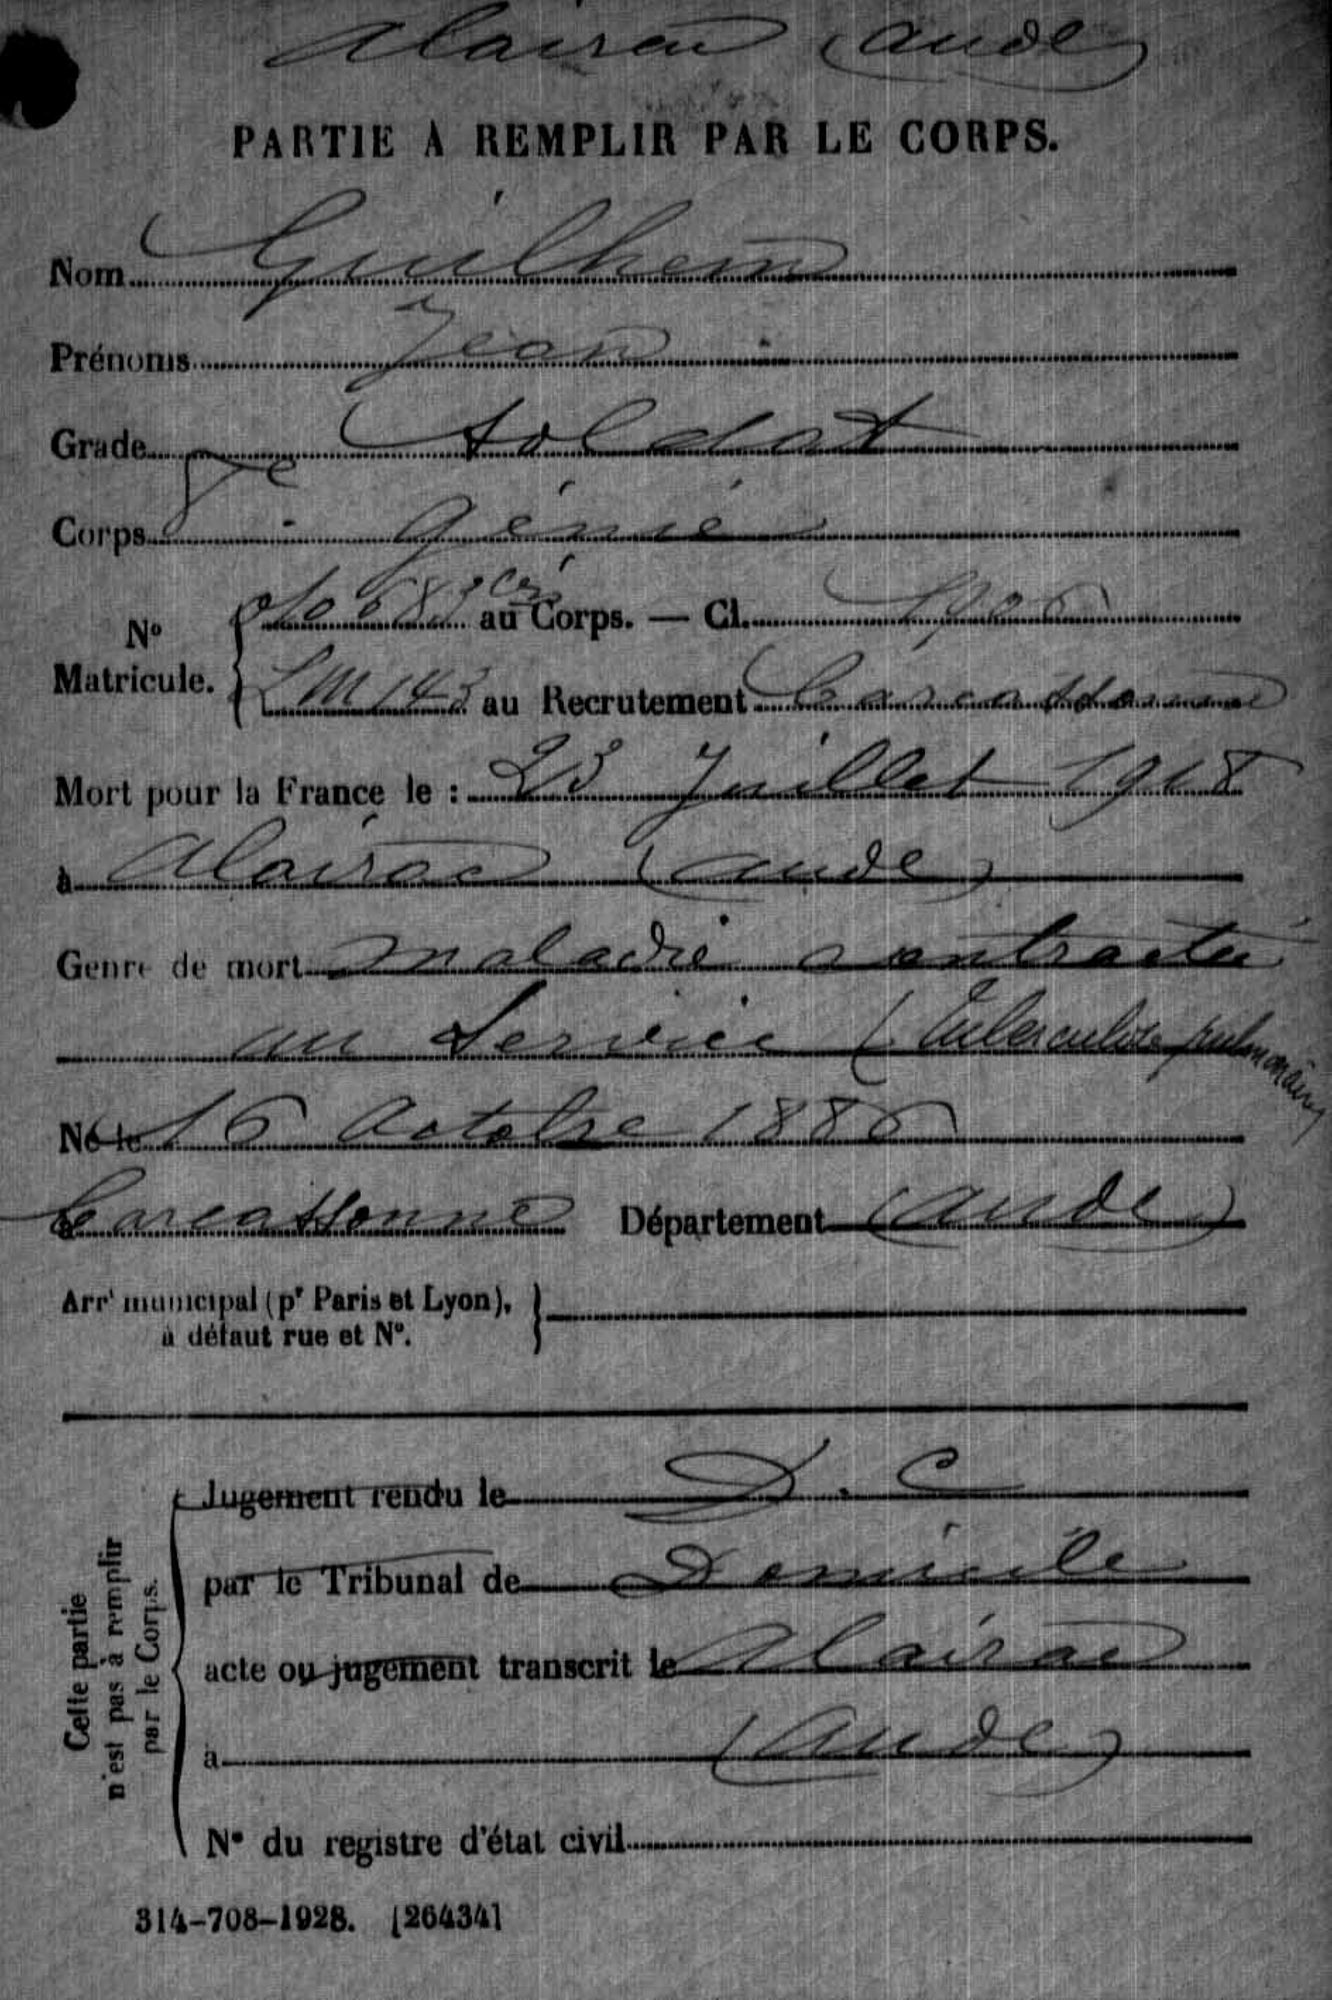 Alairac (Aude)
PARTIE À REMPLIR PAR LE CORPS.
Nom Guilhem
Prénoms Jean
Grade soldat
Corps 7e Génie
No Matricule. 10683 au Corps. — Cl. 1906
LM 143 au Recrutement Carcassonne
Mort pour la France le : 23 Juillet 1918
à Alairac (Aude)
Genre de mort maladie contractée
au service (tuberculose pulmonaire)
Né le 16 Octobre 1886
à Carcassonne Département (Aude)
Arrt municipal (pr Paris et Lyon),
à défaut rue et No.
Cette partie
n'est pas à remplir
par le Corps.
Jugement rendu le D. C
par le Tribunal de Domicile
acte ou jugement transcrit le Alairac
à (Aude)
No du registre d'état civil
314-708-1928. [26434]